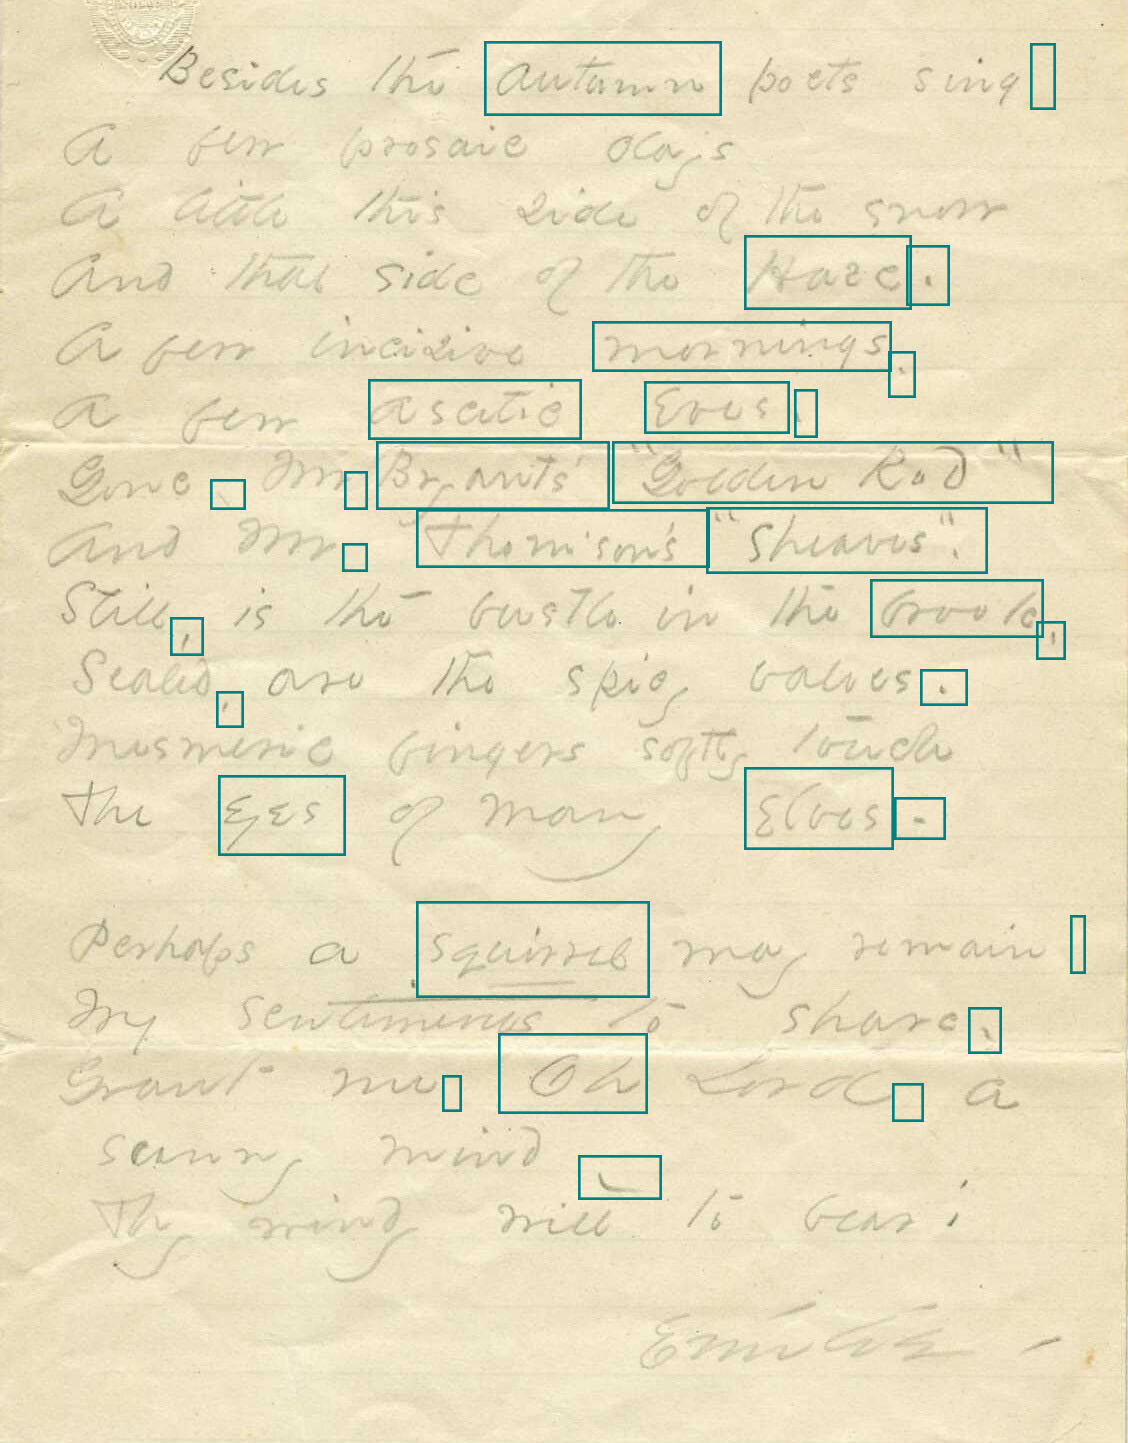 Besides the autumn poets sing
A few prosaic days
A little this side of the snow
And that side of the Haze.
A few incisive mornings.
A few ascetic Eves.
Gone, Mr Bryant's "Golden Rod"
And Mr Thomson's "Sheaves".
Still, is the bustle in the brook.
Sealed, are the spicy valves.
Mesmeric fingers softly touch
The Eyes of many Elves.
Perhaps a squirrel may remain
My sentiments to share.
Grant me Oh Lord a
sunny mind
Thy windy will to bear!
Emily